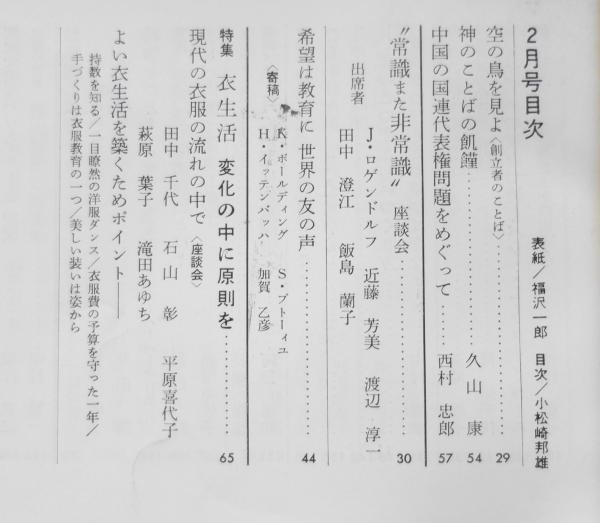 2月号目次
表紙／福沢一郎　目次／小松崎邦雄
空の鳥を見よ〈創立者のことば〉……………29
神のことばの飢饉……………久山　康　54
中国の国連代表権問題をめぐって……西村　忠郎　57
〝常識また非常識〟座談会……………30
出席者　J・ロゲンドルフ　近藤　芳美　渡辺　淳一
田中　澄江　飯島　蘭子
希望は教育に　世界の友の声……………44
〈寄稿〉　K・ボールディング　S・ブトーィユ
H・イッテンバッハ　加賀　乙彦
特集　衣生活　変化の中に原則を……………65
現代の衣服の流れの中で〈座談会〉
田中　千代　石山　彰　平原喜代子
萩原　葉子　滝田あゆち
よい衣生活を築くためポイント——
持数を知る／一目瞭然の洋服ダンス／衣服費の予算を守った一年／
手づくりは衣服教育の一つ／美しい装いは姿から